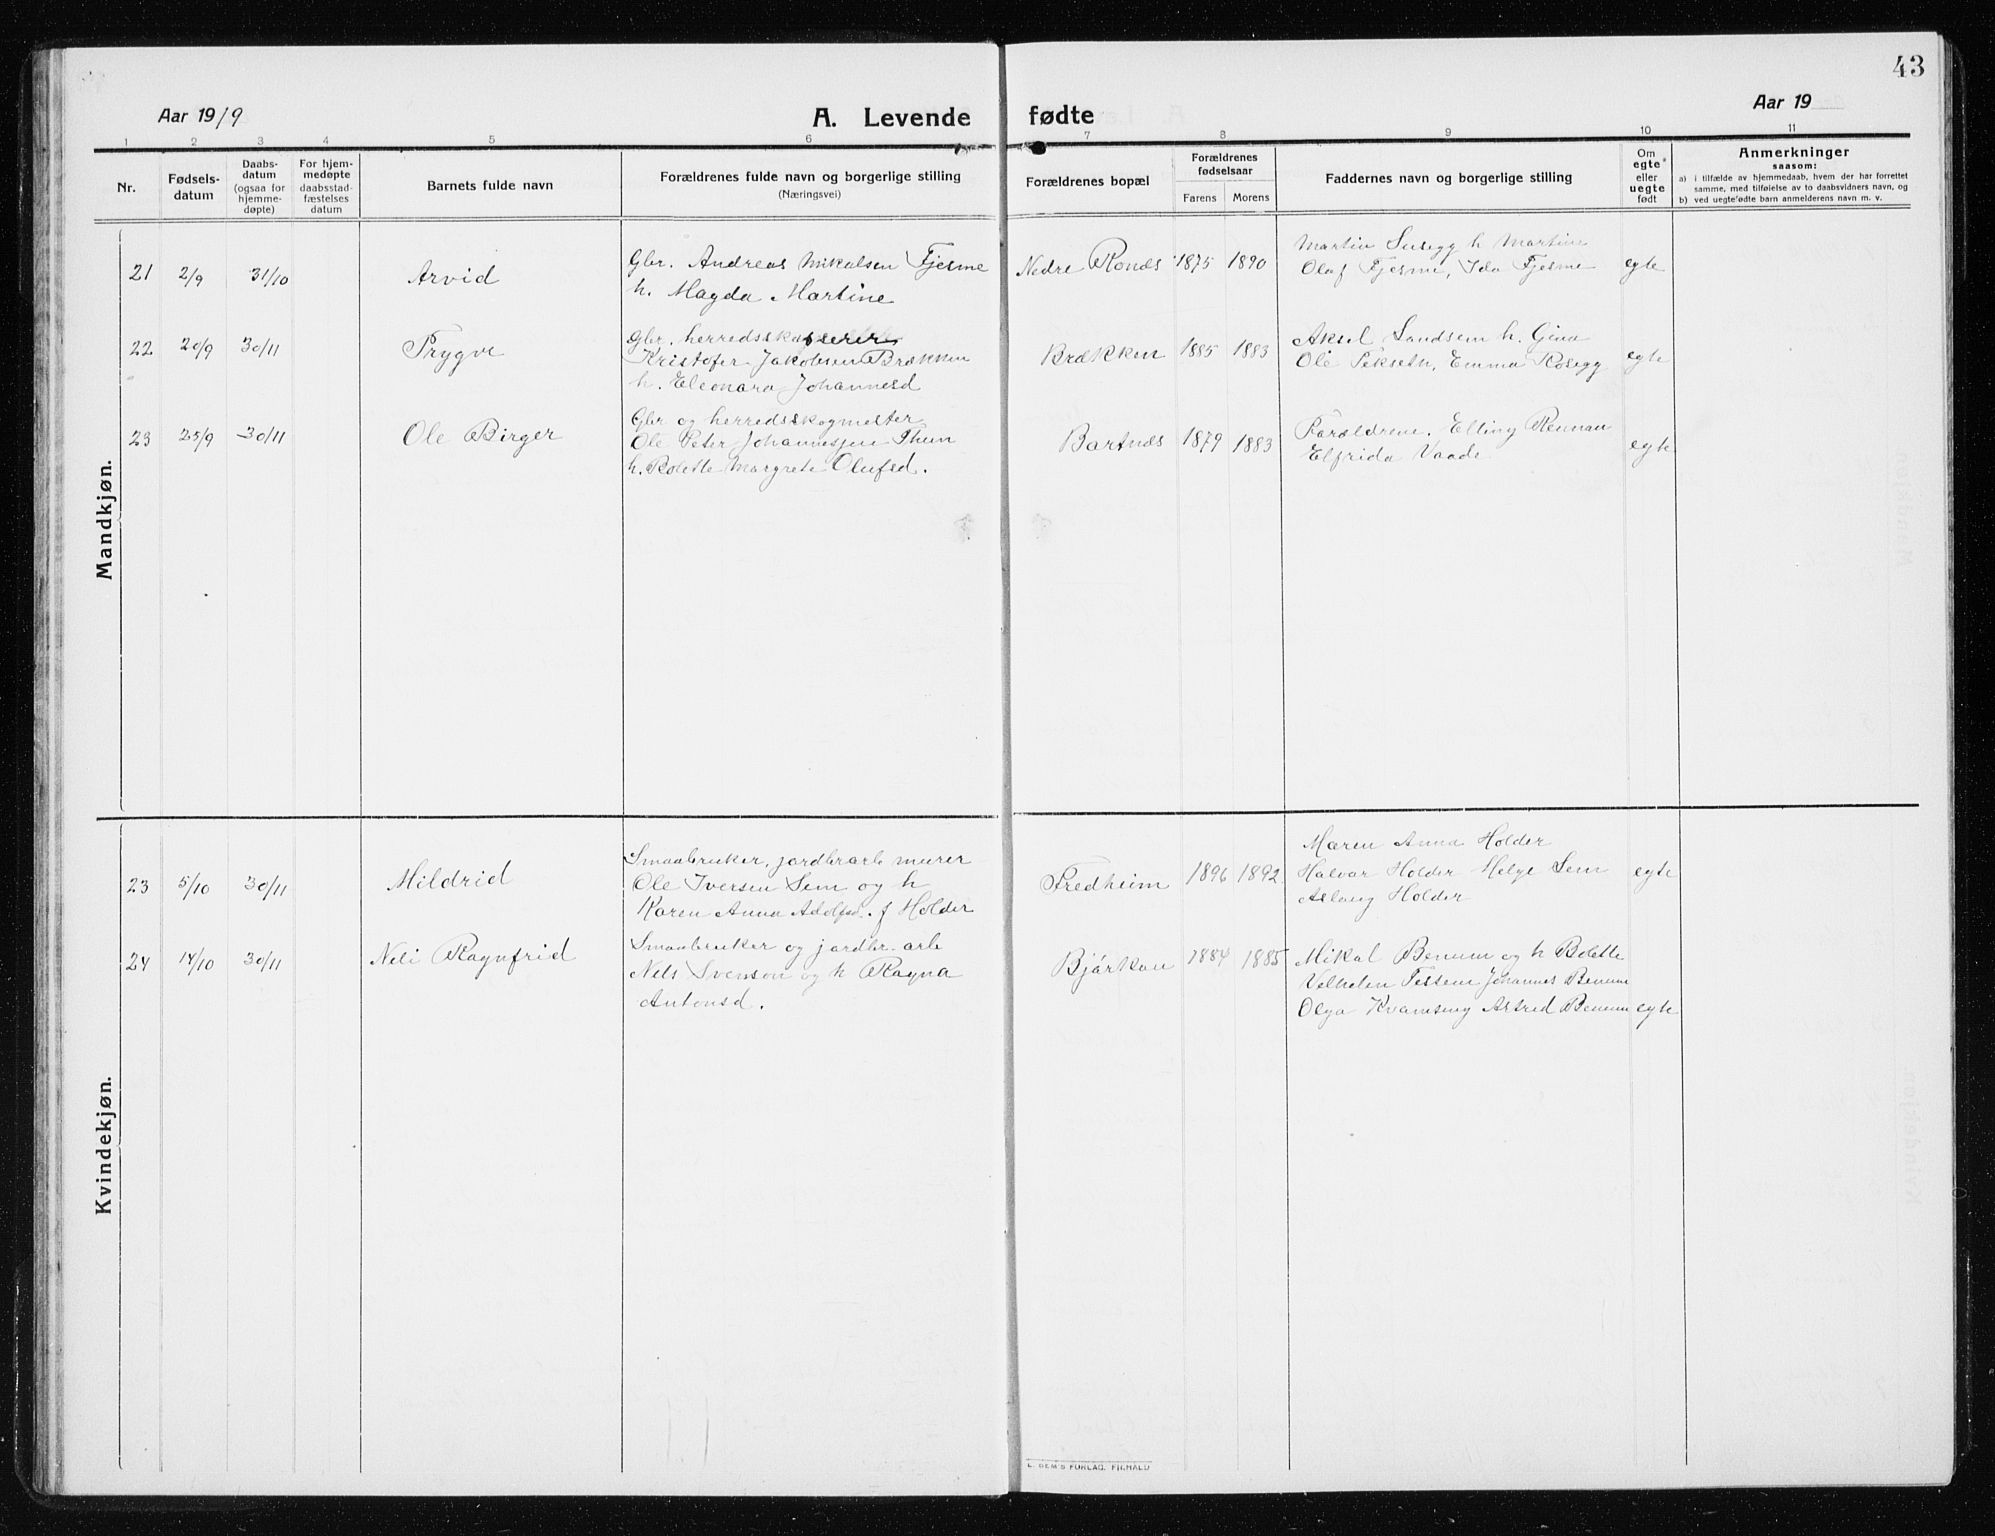 43
Aar 1919
A. Levende fødte
Aar 19
1 2 3 4 5 6 7 8 9 10 11
Nr.
Fødsels-
datum
Daabs-
datum
(ogsaa for
hjemme-
døpte)
For hjem-
medøpte
daabsstad-
fæstelses
datum
Barnets fulde navn
Forældrenes fulde navn og borgerlige stilling
(Næringsvei)
Forældrenes bopæl
Forældrenes
fødselsaar
Farens Morens
Faddernes navn og borgerlige stilling
Om
egte
eller
uegte
født
Anmerkninger
saasom:
a) i tilfælde av hjemmedaab, hvem der har forrettet
samme, med tilføielse av to daabsvidners navn, og
b) ved uegtefødte barn anmelderens navn m. v.
Mandkjøn.
21 2/9 31/10 Arvid
Gbr. Andreas Mikalsen Fjesme
h. Magda Martine
Nedre Ronæs 1875 1890
Martin Susegg h Martine
Olaf Fjesme, Ida Fjesme
egte
22 20/9 30/11 Trygve
Gbr. herredskaserer
Kristofer Jakobsen Brækken
h. Eleonara Johannesd
Brækken 1885 1883
Aksel Sandsem h. Gina
Ole Pekseth, Emma Rosegg
egte
23 25/9 30/11 Ole Birger
Gbr og herredsskogmester
Ole Peter Johannesjen Thun
h. Bolette Margrete Olufsd.
Bartnæs 1879 1883
Forældrene. Elling Rennan
Elfrida Vaade
egte
Kvindekjøn.
23 5/10 30/11 Mildrid
Smaabruker, jordbrarb murer
Ole Iversen Sem og h
Karen Anna Adolfsd. f Holder
Fredheim 1896 1892
Maren Anna Holder
Halvar Holder Helge Sem
Aslaug Holder
egte
24 14/10 30/11 Neli Ragnfrid
Smaabruker og jordbr. arb
Nels Svenson og h Ragna
Antonsd.
Bjørkan 1884 1885
Mikal Benum og h Bolette
Velhelm Tessem Johannes Benum
Olga Kvamseng Astred Benum
egte
E. SEM'S FORLAG, FR.HALD